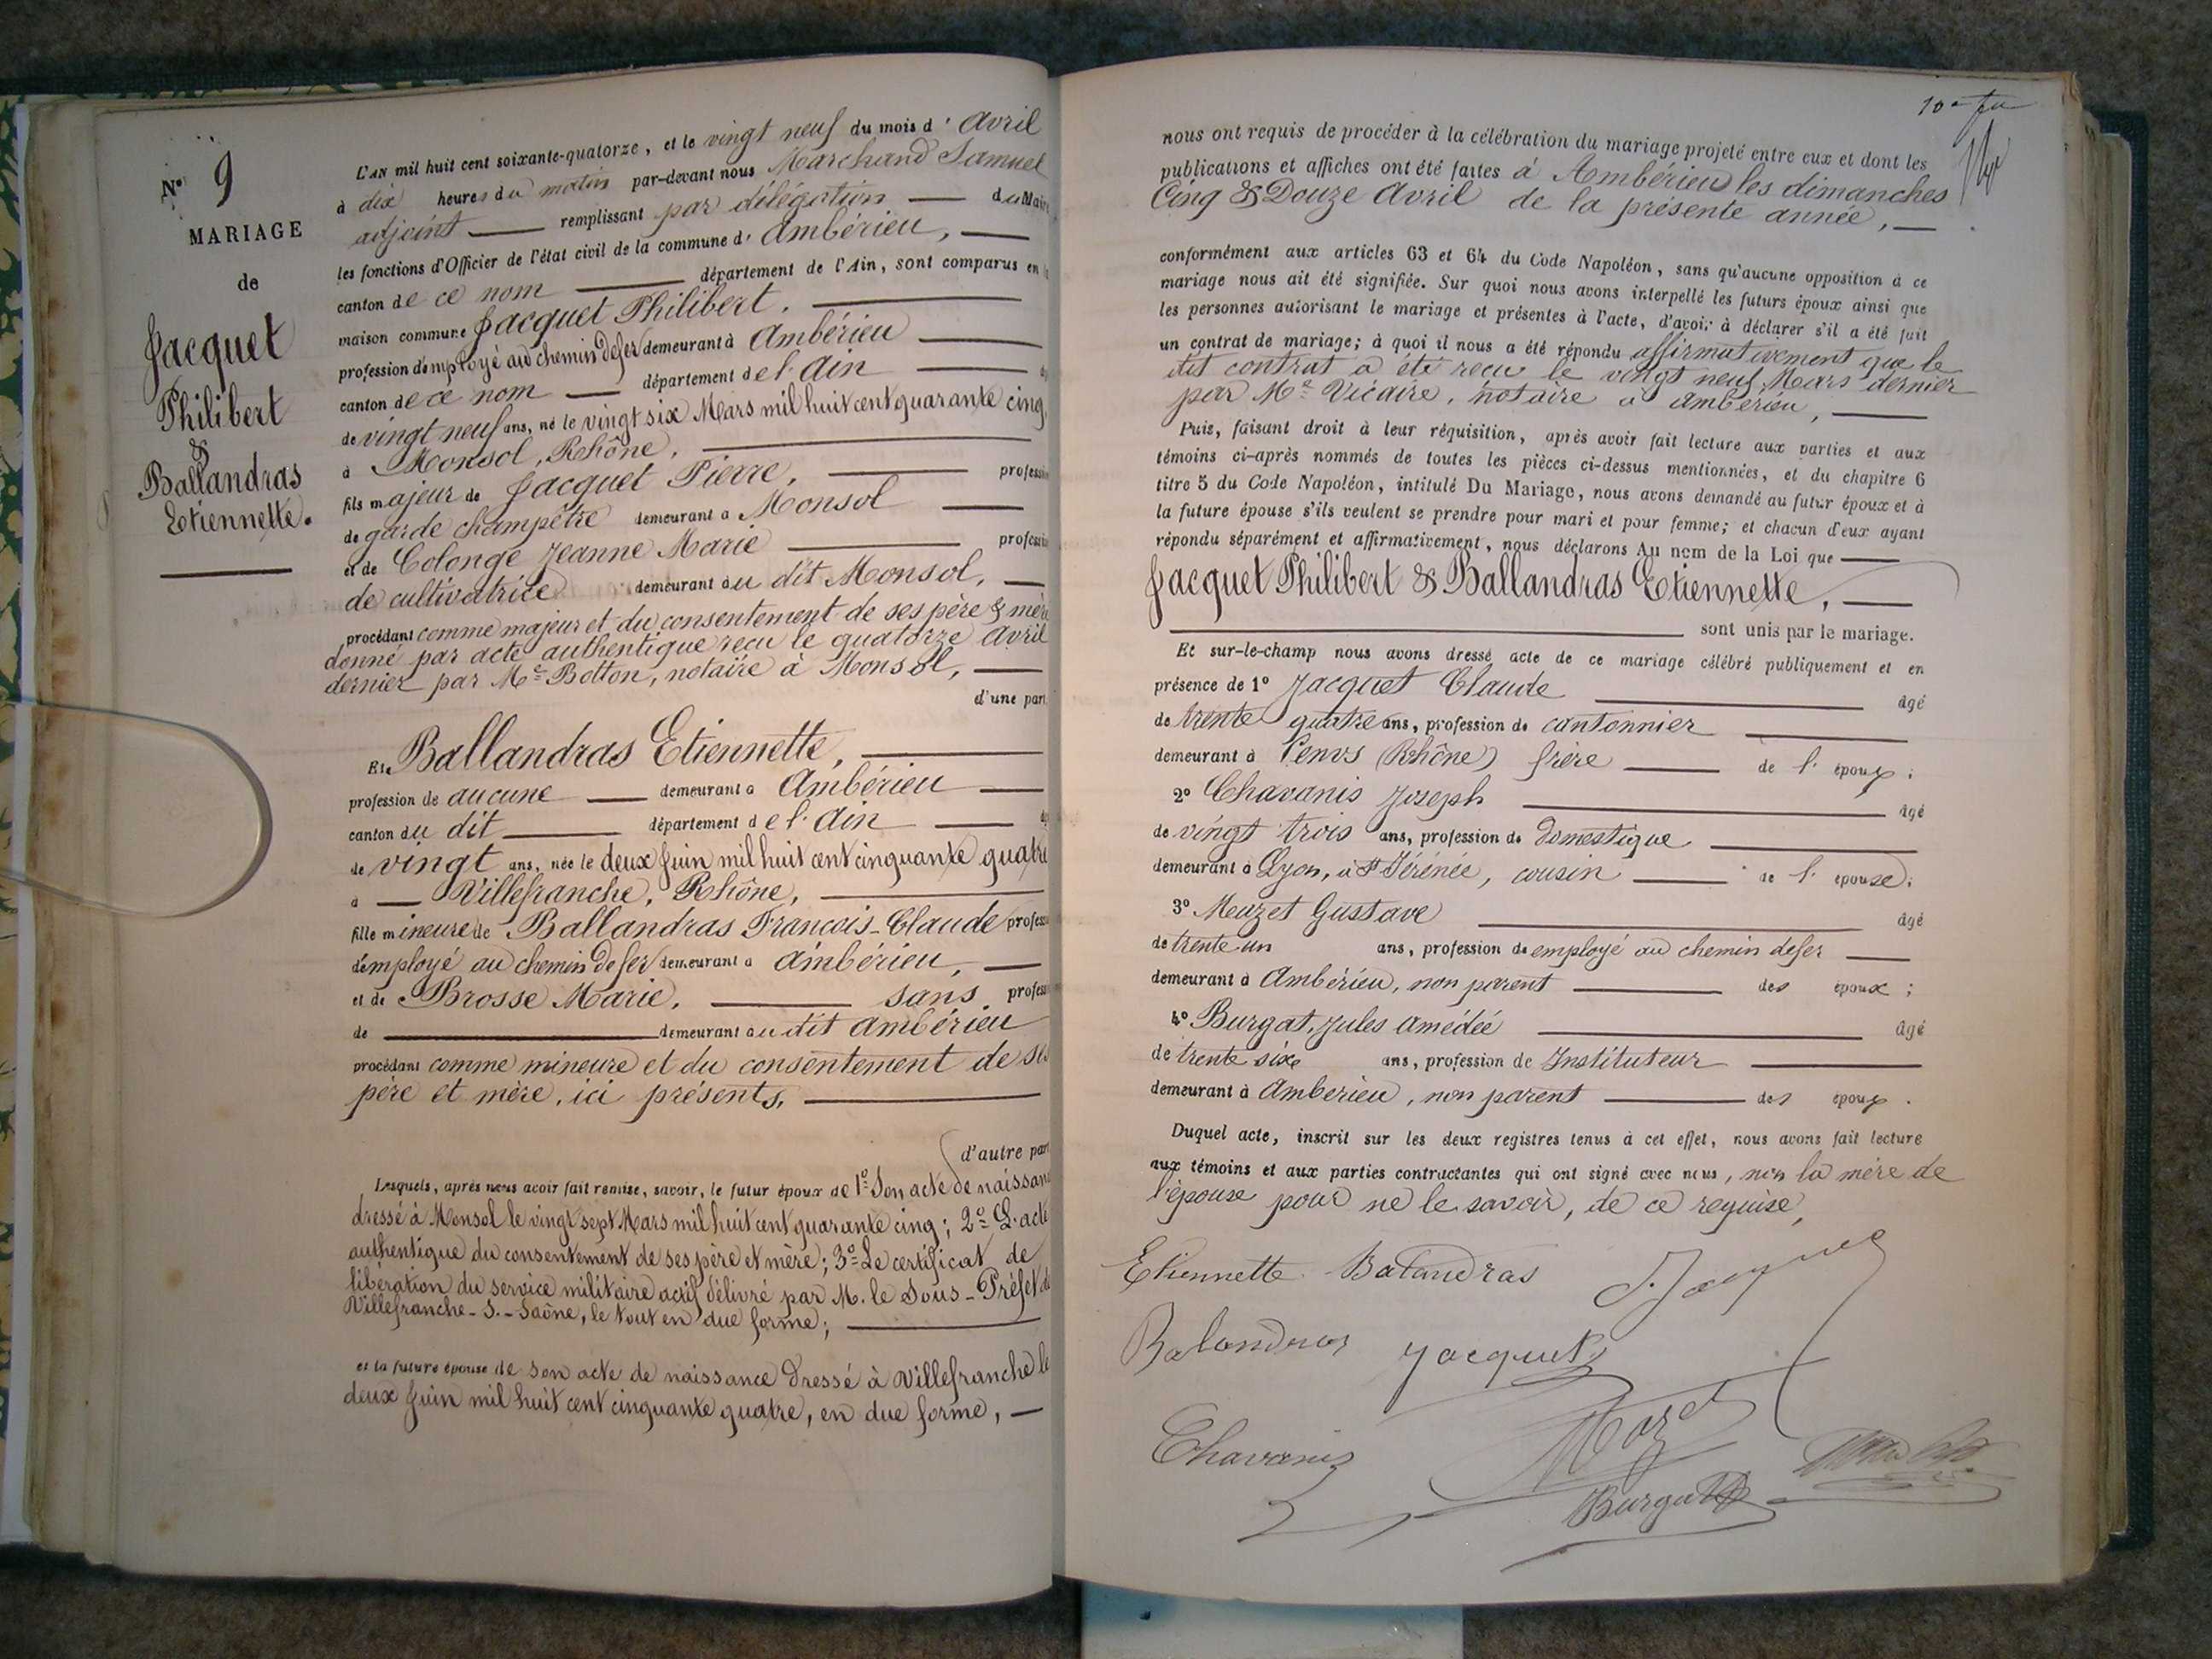 N° 9
MARIAGE
de
Jacquet
Philibert
&
Ballandras
Etiennette.
L'AN mil huit cent soixante-quatorze, et le vingt neuf du mois d'Avril
à dix heures du matin par-devant nous Marchand Samuel
adjoint remplissant par délégation du Maire
les fonctions d'Officier de l'état civil de la commune d'Ambérieu,
canton de ce nom département de l'Ain, sont comparus en la
maison commune Jacquet Philibert,
profession d'employé au chemin de fer demeurant à Ambérieu
canton de ce nom département de l'Ain
de vingt neuf ans, né le vingt six Mars mil huit cent quarante cinq
à Monsol, Rhône,
fils majeur de Jacquet Pierre, profession
de garde champêtre demeurant à Monsol
et de Colonge Jeanne Marie profession
de cultivatrice demeurant au dit Monsol,
procédant comme majeur et du consentement de ses père & mère
donné par acte authentique reçu le quatorze Avril
dernier par Me Botton, notaire à Monsol,
d'une part
Et Ballandras Etiennette,
profession de aucune demeurant à Ambérieu
canton du dit département de l'Ain
de vingt ans, née le deux Juin mil huit cent cinquante quatre
à Villefranche, Rhône,
fille mineure de Ballandras François-Claude profession
d'employé au chemin de fer demeurant à Ambérieu,
et de Brosse Marie, sans profession
de demeurant au dit Ambérieu
procédant comme mineure et du consentement de ses
père et mère, ici présents,
d'autre part
Lesquels, après nous avoir fait remise, savoir, le futur époux de 1° Son acte de naissance
dressé à Monsol le vingt sept Mars mil huit cent quarante cinq; 2° L'acte
authentique du consentement de ses père et mère; 3° Le certificat de
libération du service militaire actif délivré par M. le Sous-Préfet de
Villefranche-S.-Saône, le tout en due forme;
et la future épouse de son acte de naissance dressé à Villefranche le
deux Juin mil huit cent cinquante quatre, en due forme,
nous ont requis de procéder à la célébration du mariage projeté entre eux et dont les
publications et affiches ont été faites à Ambérieu les dimanches
Cinq & Douze Avril de la présente année,
conformément aux articles 63 et 64 du Code Napoléon, sans qu'aucune opposition à ce
mariage nous ait été signifiée. Sur quoi nous avons interpellé les futurs époux ainsi que
les personnes autorisant le mariage et présentes à l'acte, d'avoir à déclarer s'il a été fait
un contrat de mariage; à quoi il nous a été répondu affirmativement que le
dit contrat a été reçu le vingt neuf Mars dernier
par Me Vicaire, notaire à Ambérieu,
Puis, faisant droit à leur réquisition, après avoir fait lecture aux parties et aux
témoins ci-après nommés de toutes les pièces ci-dessus mentionnées, et du chapitre 6
titre 5 du Code Napoléon, intitulé Du Mariage, nous avons demandé au futur époux et à
la future épouse s'ils veulent se prendre pour mari et pour femme; et chacun d'eux ayant
répondu séparément et affirmativement, nous déclarons Au nom de la Loi que
Jacquet Philibert & Ballandras Etiennette,
sont unis par le mariage.
Et sur-le-champ nous avons dressé acte de ce mariage célébré publiquement et en
présence de 1° Jacquet Claude âgé
de trente quatre ans, profession de cantonnier
demeurant à (Rhône) frère de l'époux;
2° Chavanis Joseph âgé
de vingt trois ans, profession de domestique
demeurant à Lyon, à St Irénée, cousin de l'épouse;
3° Muzet Gustave âgé
de trente un ans, profession de employé au chemin de fer
demeurant à Ambérieu, non parent des époux;
4° Burgat, Jules Amédéé âgé
de trente six ans, profession de Instituteur
demeurant à Ambérieu, non parent des époux.
Duquel acte, inscrit sur les deux registres tenus à cet effet, nous avons fait lecture
aux témoins et aux parties contractantes qui ont signé avec nous, non la mère de
l'épouse pour ne le savoir, de ce requise,
Etiennette Balandras
Balandras Jacquet
Chavanis
Burgat